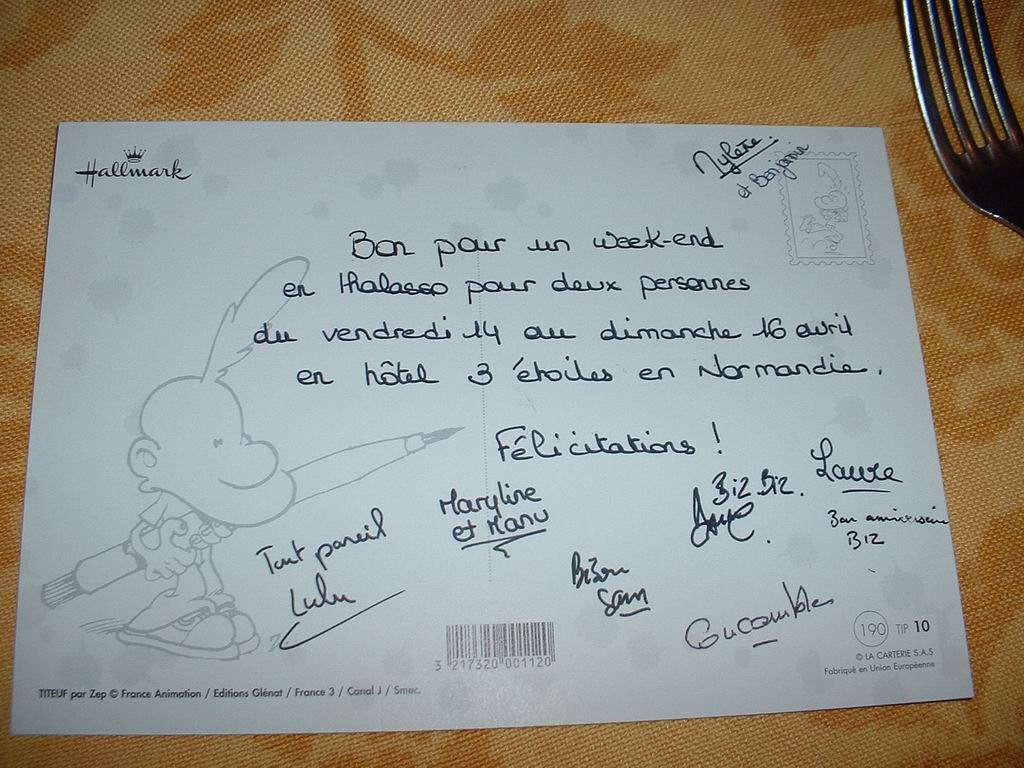 Hallmark
Mylène
et Benjamin
Bon pour un week-end
en thalasso pour deux personnes
du vendredi 14 au dimanche 16 avril
en hôtel 3 étoiles en Normandie.
Félicitations !
Laure
Biz Biz.
Maryline
et Manu
Bon anniversaire
Biz
Tout pareil
Lulu
Bisou
Sam
190 TIP 10
© LA CARTERIE S.A.S
Fabriqué en Union Européenne
3 217320 001120
TITEUF par Zep © France Animation / Editions Glénat / France 3 / Canal J / Smec.